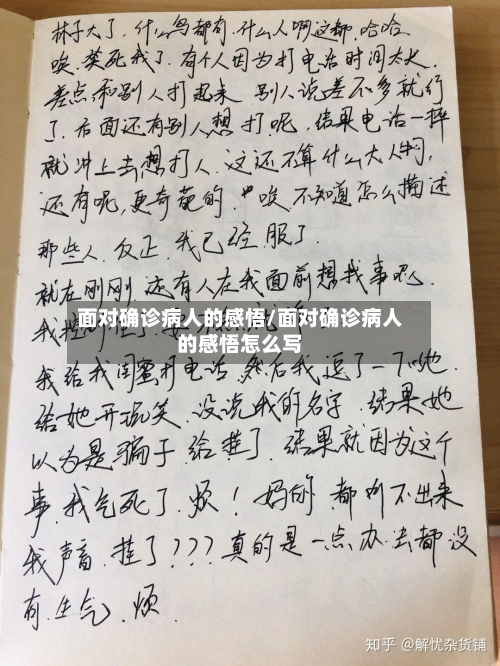 林子大了，什么鸟都有，什么人啊这都，哈哈
唉，笑死我了，有个人因为打电话时间太长
差点和别人打起来，别人说差不多就行
了，后面还有别人想打呢，结果电话一摔
就冲上去想打人，这还不算什么大人物，
还有呢，更奇葩的，唉，不知道怎么描述
那些人，反正，我已经服了．
就在刚刚，还有人在我面前想找事呢
面对确诊病人的感悟/面对确诊病人
的感悟怎么写
我给我闺蜜打电话，然后我逗了一下她．
给她开玩笑．没说我的名字．结果她
以为是骗子给挂了．结果就因为这个
事，我气死了．烦！妈的，都听不出来
我声音，挂了？？？真的是一点办法都没
有，生气，烦．
知乎 @解忧杂货铺